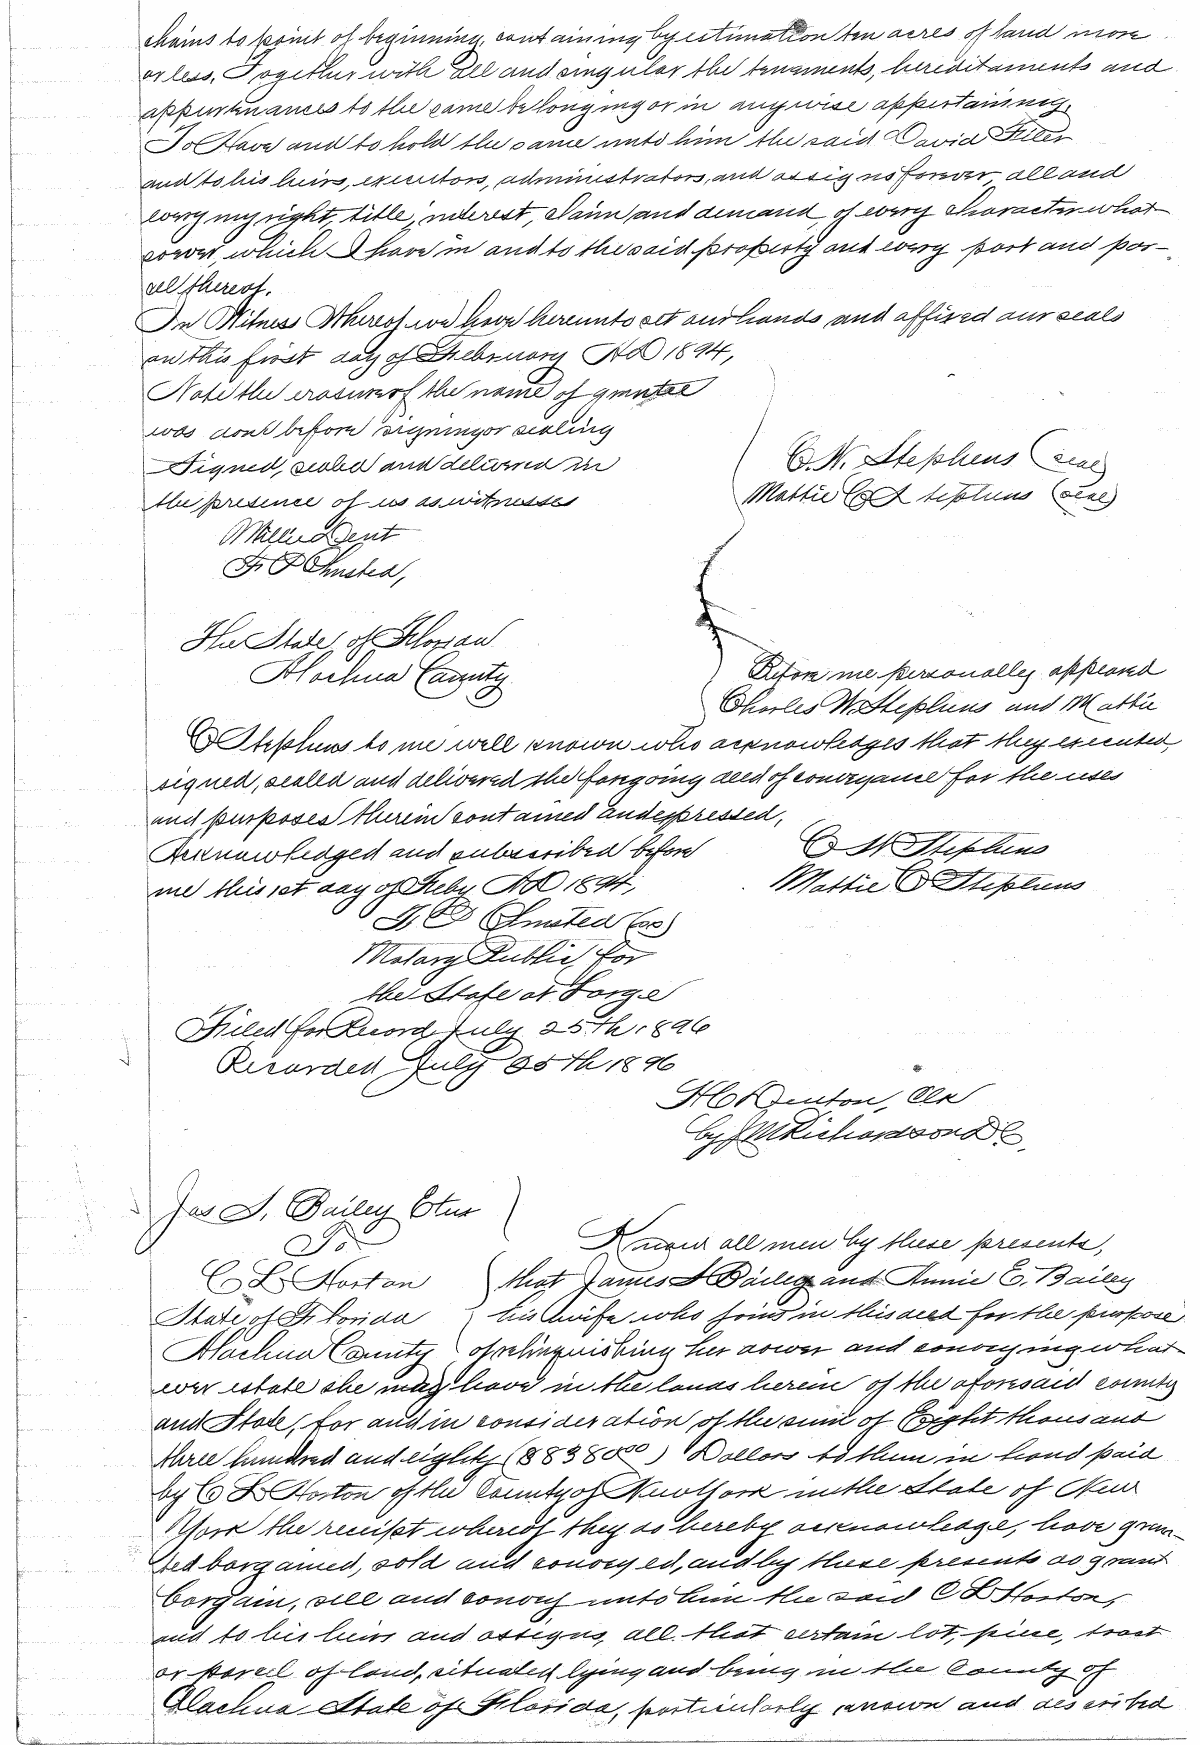 chains to point of beginning, containing by estimation ten acres of land more
or less. Together with all and singular the tenements, hereditaments and
appurtenances to the same belonging or in anywise appertaining,
To Have and to hold the same unto him the said David
and to his heirs, executors, administrators, and assigns forever, all and
every my right, title, interest, claim and demand, of every character what
soever, which I have in and to the said property and every part and par-
cel thereof.
In Witness Whereof we have hereunto set our hands and affixed our seals
on this first day of February AD 1894,
Note the erasure of the name of grantee
was done before signing or sealing
Signed, sealed and delivered in
the presence of us as witnesses
C. W. Stephens (seal)
Mattie C Stephens (seal)
Willie Dent
F. P Olmsted,
The State of Florida
Alachua County
Before me personally appeared
Charles W. Stephens and Mattie
C Stephens to me well known who acknowledges that they executed,
signed, sealed and delivered the foregoing deed of conveyance for the uses
and purposes therein contained and expressed,
Acknowledged and subscribed before
me this 1st day of Feby AD 1894,
C W Stephens
Mattie C Stephens
F. P Olmsted
Notary Public for
the State at Large
Filed for Record July 25th 1896
Recorded July 25th 1896
H C Denton, Clk
by J M Richardson D C.
Jas S. Bailey Etux
To
C L Horton
State of Florida
Alachua County
Know all men by these presents,
that James S Bailey and Annie E. Bailey
his wife who joins in this deed for the purpose
of relinquishing her dower and conveying what
ever estate she may have in the lands herein of the aforesaid county
and State, for and in consideration of the sum of Eight thousand
three hundred and eighty (8838000) Dollars to them in hand paid
by C L Horton of the County of New York in the State of New
York the receipt whereof they do hereby acknowledge, have gran-
ted bargained, sold and conveyed, and by these presents do grant
bargain, sell and convey unto him the said C L Horton,
and to his heirs and assigns, all that certain lot, piece, tract
or parcel of land, situated lying and being in the County of
Alachua State of Florida, particularly known and described